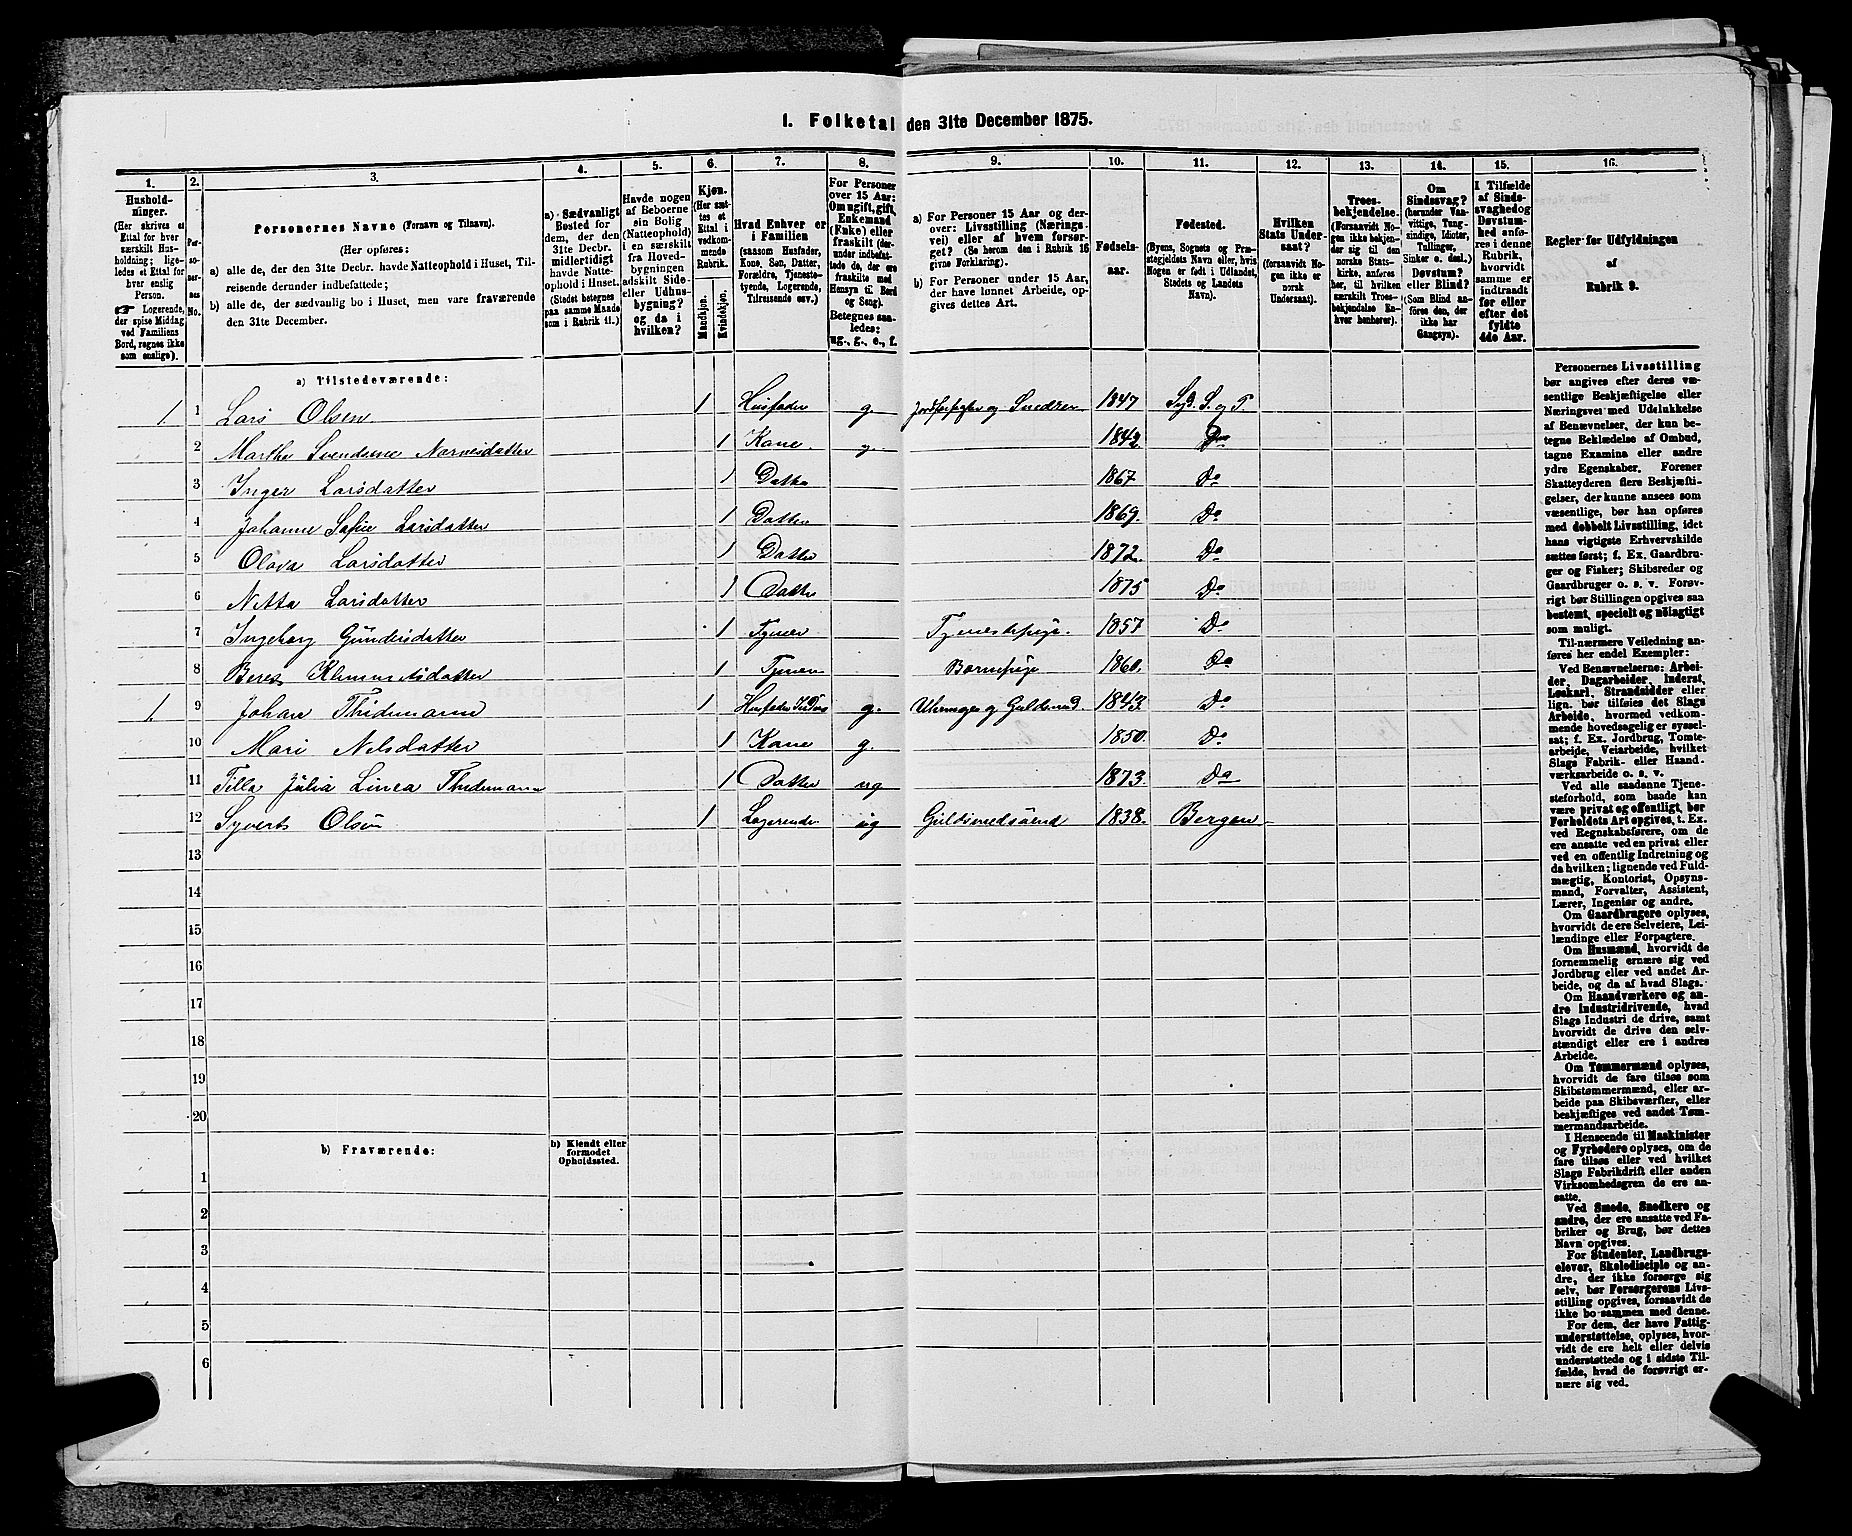 1. Folketal den 31te December 1875.
1. 2. 3. 4. 5. 6. 7. 8. 9. 10. 11. 12. 13. 14. 15. 16.
Hushold-
ninger.
(Her skrives et
Ettal for hver
særskilt Hus-
holdning; lige-
ledes et Ettal for
hver enslig
Person.
☞ Logerende,
der spise Middag
ved Familiens
Bord, regnes ikke
som enslige).
Per-
so-
ner-
nes
No.
Personernes Navne (Fornavn og Tilnavn).
(Her opføres:
a) alle de, der den 31te Decbr. havde Natteophold i Huset, Til-
reisende derunder indbefattede;
b) alle de, der sædvanlig bo i Huset, men vare fraværende
den 31te December.
a) Sædvanligt
Bosted for
dem, der den
31te Decbr.
midlertidigt
havde Natte-
ophold i Huset.
(Stedet betegnes
paa samme Maade
som i Rubrik 11.)
Havde nogen
af Beboerne
sin Bolig
(Natteophold)
i en særskilt
fra Hoved-
bygningen
adskilt Side-
eller Udhus-
bygning?
og da i
hvilken?
Kjøn.
(Her sæt-
tes et
Ettal i
vedkom-
mende
Rubrik.
Mandkjøn.
Kvindekjøn.
Hvad Enhver er
i Familien
(saasom Husfader,
Kone, Søn, Datter,
Forældre, Tjeneste-
tyende, Logerende,
Tilreisende osv.)
For Personer
over 15 Aar:
Om ugift, gift,
Enkemand
(Enke) eller
fraskilt (der-
under indbefat-
tede de, der ere
fraskilte med
Hensyn til Bord
og Seng).
Betegnes saa-
ledes:
ug., g., e., f.
a) For Personer 15 Aar og der-
over: Livsstilling (Nærings-
vei) eller af hvem forsør-
get. (Se herom den i Rubrik 16
givne Forklaring).
b) For Personer under 15 Aar,
der have lønnet Arbeide, op-
gives dettes Art.
Fødsels-
aar.
Fødested.
(Byens, Sognets og Præ-
stegjeldets Navn eller, hvis
Nogen er født i Udlandet,
Stedets og Landets
Navn).
Hvilken
Stats Under-
saat?
(forsaavidt No-
gen ikke er
norsk
Undersaat).
Troes-
bekjendelse.
(Forsaavidt No-
gen ikke bekjen-
der sig til den
norske Stats-
kirke, anføres
her, til hvilken
særskilt Troes-
bekjendelse En-
hver henhører).
Om
Sindssvag?
(herunder Van-
vittige, Tung-
sindige, Idioter,
Tullinger,
Sinker o. desl.)
Døvstum?
eller Blind?
(Som Blind an-
føres den, der
ikke har
Gangsyn).
I Tilfælde
af Sinds-
svaghed og
Døvstum-
hed anfø-
res i denne
Rubrik,
hvorvidt
samme er
indtraadt
før eller
efter det
fyldte
4de Aar.
Regler for Udfyldningen
af
Rubrik 9.
a) Tilstedeværende:
1. 1 Lars Olsen 1 Husfader g. Jordforpagter og Snedker 1847 Syd. S. og P.
2 Martha 1 Kone g. 1842 Do
3 Inger Larsdatter 1 Datter 1867 Do
4 Johanne Sofie Larsdatter 1 Datter 1869. Do
5 Olava Larsdatter 1 Datter 1872. Do
6 Netta Larsdatter 1 Datter 1875 Do
7 Ingeborg Gundersdatter 1 Tjener Tjenestepige. 1857 Do
8 1 Tjener Barnepige 1860. Do
1. 9 Johan Thidemann 1 Husfader g. 1843. Do
10 Mari Nilsdatter 1 Kone g. 1850. Do
11 Tilla Julia Linea Thidemann 1 Datter ug 1873. Do
12 Syvert Olsen 1 Logerende ug Guldsmedsvend 1838. Bergen
13
14
15
16
17
18
19
20
b) Fraværende:
b) Kjendt eller
formodet
Opholdssted.
1
2
3
4
5
6
Personernes Livsstilling
bør angives efter deres væ-
sentlige Beskjæftigelse eller
Næringsvei med Udelukkelse
af Benævnelser, der kun be-
tegne Beklædelse af Ombud,
tagne Examina eller andre
ydre Egenskaber. Forener
Skatteyderen flere Beskjæfti-
gelser, der kunne ansees som
væsentlige, bør han opføres
med dobbelt Livsstilling, idet
hans vigtigste Erhvervskilde
sættes først; f. Ex. Gaardbru-
ger og Fisker; Skibsreder og
Gaardbruger o. s. v. Forøv-
rigt bør Stillingen opgives saa
bestemt, specielt og nöiagtigt
som muligt.
Til nærmere Veiledning an-
føres her endel Exempler:
Ved Benævnelserne: Arbei-
der, Dagarbeider, Inderst,
Løskarl, Strandsidder eller
lign. bør tilføies det Slags
Arbeide, hvormed vedkom-
mende hovedsagelig er syssel-
sat; f. Ex. Jordbrug, Tomte-
arbeide, Veiarbeide, hvilket
Slags Fabrik- eller Haand-
værksarbeide o. s. v.
Ved alle saadanne Tjene-
steforhold, som baade kan
være privat og offentligt, bør
Forholdets Art opgives, t. Ex.
ved Regnskabsførere, om de
ere ansatte ved en privat eller
ved en offentlig Indretning og
da hvilken; lignende ved Fuld-
mægtig, Kontorist, Opsyns-
mand, Forvalter, Assistent,
Lærer, Ingeniør og andre.
Om Gaardbrugere oplyses,
hvorvidt de ere Selveiere, Lei-
lændinge eller Forpagtere.
Om Husmænd, hvorvidt de
fornemmelig ernære sig ved
Jordbrug eller ved andet Ar-
beide, og da af hvad Slags.
Om Haandværkere og an-
dre Industridrivende, hvad
Slags Industri de drive, samt
hvorvidt de drive den selv-
stændigt eller ere i andres
Arbeide.
Om Tømmermænd oplyses,
hvorvidt de fare tilsøs som
Skibstømmermænd, eller ar-
beide paa Skibsværfter, eller
beskjæftiges ved andet Tøm-
mermandsarbeide.
I Henseende til Maskinister
og Fyrbødere oplyses, om de
fare tilsøs eller ved hvilket
Slags Fabrikdrift eller anden
Virksomhedsgren de ere an-
satte.
Ved Smede, Snedkere og
andre, der ere ansatte ved Fa-
briker og Brug, bør dettes
Navn opgives.
For Studenter, Landbrugs-
elever, Skoledisciple og an-
dre, der ikke forsørge sig
selv, bør Forsørgerens Livs-
stilling opgives, forsaavidt de
ikke bo sammen med denne.
For dem, der have Fattig-
understøttelse, oplyses, hvor-
vidt de ere helt eller delvis
understøttede og i sidste Til-
fælde, hvad de forøvrigt er-
nære sig ved.